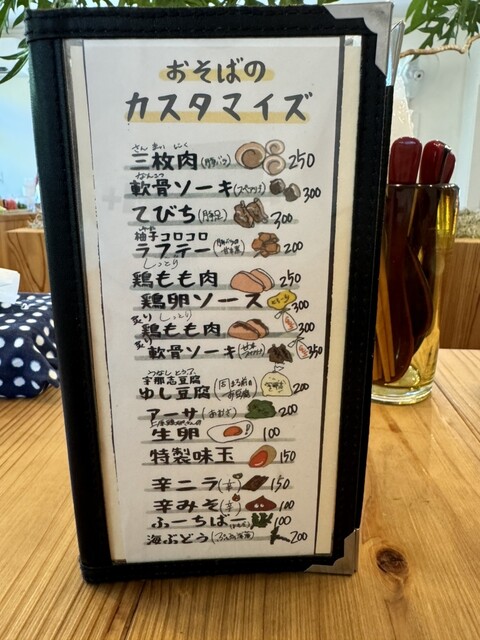 おそばの
カスタマイズ
さん まい にく
三枚肉(豚バラ) 250
なんこつ
軟骨ソーキ(スペアリブ) 300
てびち(豚足) 300
柚子コロコロ
ラフテー 200
しっとり
鶏もも肉 250
鶏卵ソース 300
炙り しっとり
鶏もも肉 300
炙り
軟骨ソーキ 350
宇那志豆腐
ゆし豆腐 200
アーサ(あおさ) 200
生卵 100
特製味玉 150
辛ニラ(辛) 150
辛みそ(辛) 100
ふーちばー(よもぎ) 100
海ぶどう 200